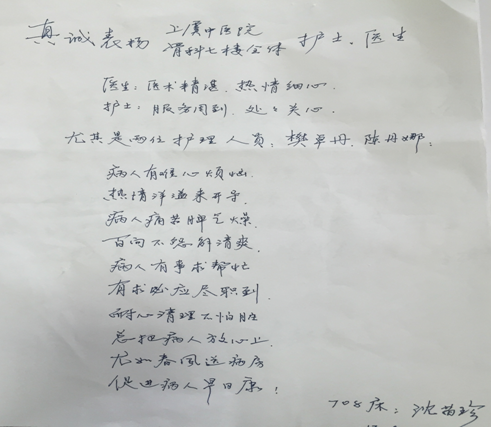 真诚表扬 上虞中医院 骨科七楼全体 护士、医生
医生：医术精湛、热情细心、
护士：服务周到、处处关心。
尤其是两位护理人员：樊早丹、陈丹娜：
病人有 心烦恼、
热情洋溢来开导
病人痛苦脾气燥、
百问不怨解清爽
病人有事求帮忙
有求必应尽职到
耐心清理不怕脏
总把病人放心上、
尤如春风送病房
促进病人早日康！
708床：沈